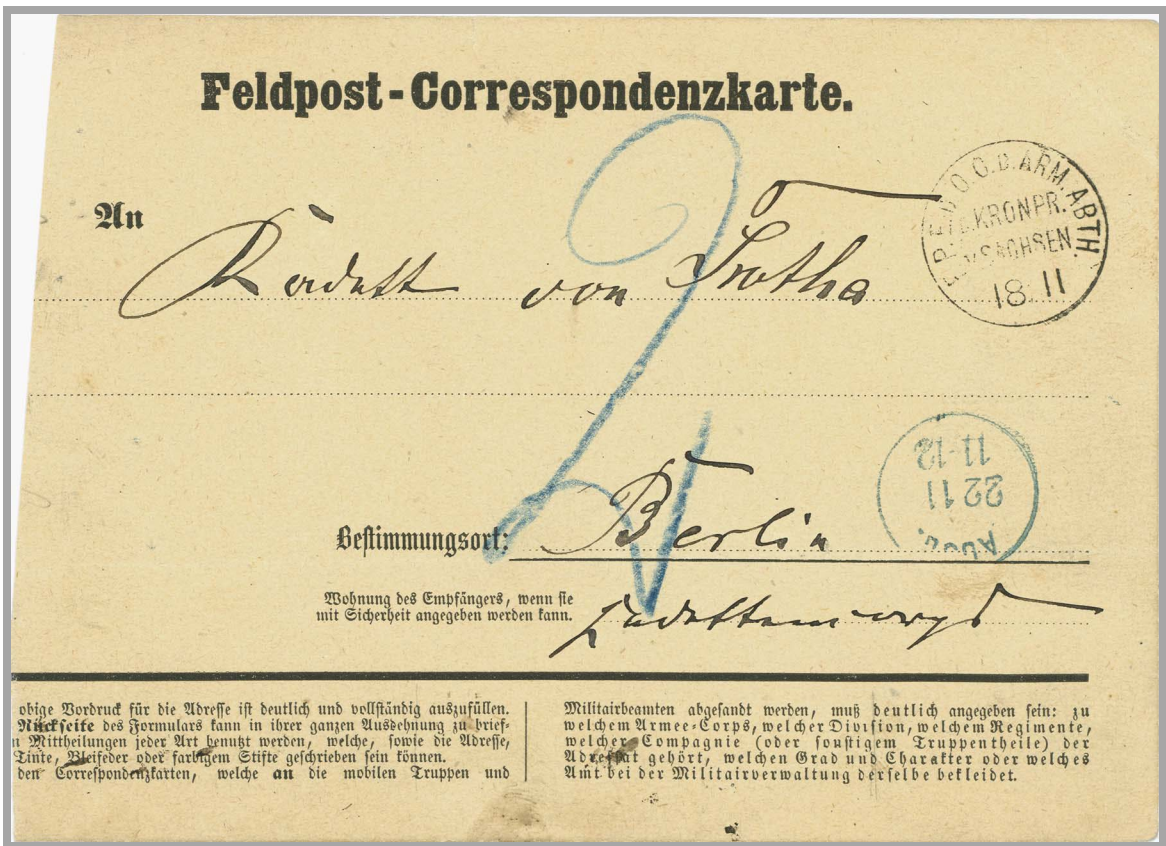 Feldpost-Correspondenzkarte.
An
Kadett von Trotha
F.P.E.D.O.C.D.ARM.ABTH.
D.KRONPR.
V.SACHSEN.
18 11
2
11-12
22 11
Bestimmungsort: Berlin
Wohnung des Empfängers, wenn sie
mit Sicherheit angegeben werden kann.
Cadettencorps
obige Vordruck für die Adresse ist deutlich und vollständig auszufüllen.
Rückseite des Formulars kann in ihrer ganzen Ausdehnung zu brief-
n Mittheilungen jeder Art benutzt werden, welche, sowie die Adresse,
Tinte, Bleifeder oder farbigem Stifte geschrieben sein können.
den Correspondenzkarten, welche an die mobilen Truppen und
Militairbeamten abgesandt werden, muß deutlich angegeben sein: zu
welchem Armee-Corps, welcher Division, welchem Regimente,
welcher Compagnie (oder sonstigem Truppentheile) der
Adressat gehört, welchen Grad und Charakter oder welches
Amt bei der Militairverwaltung derselbe bekleidet.